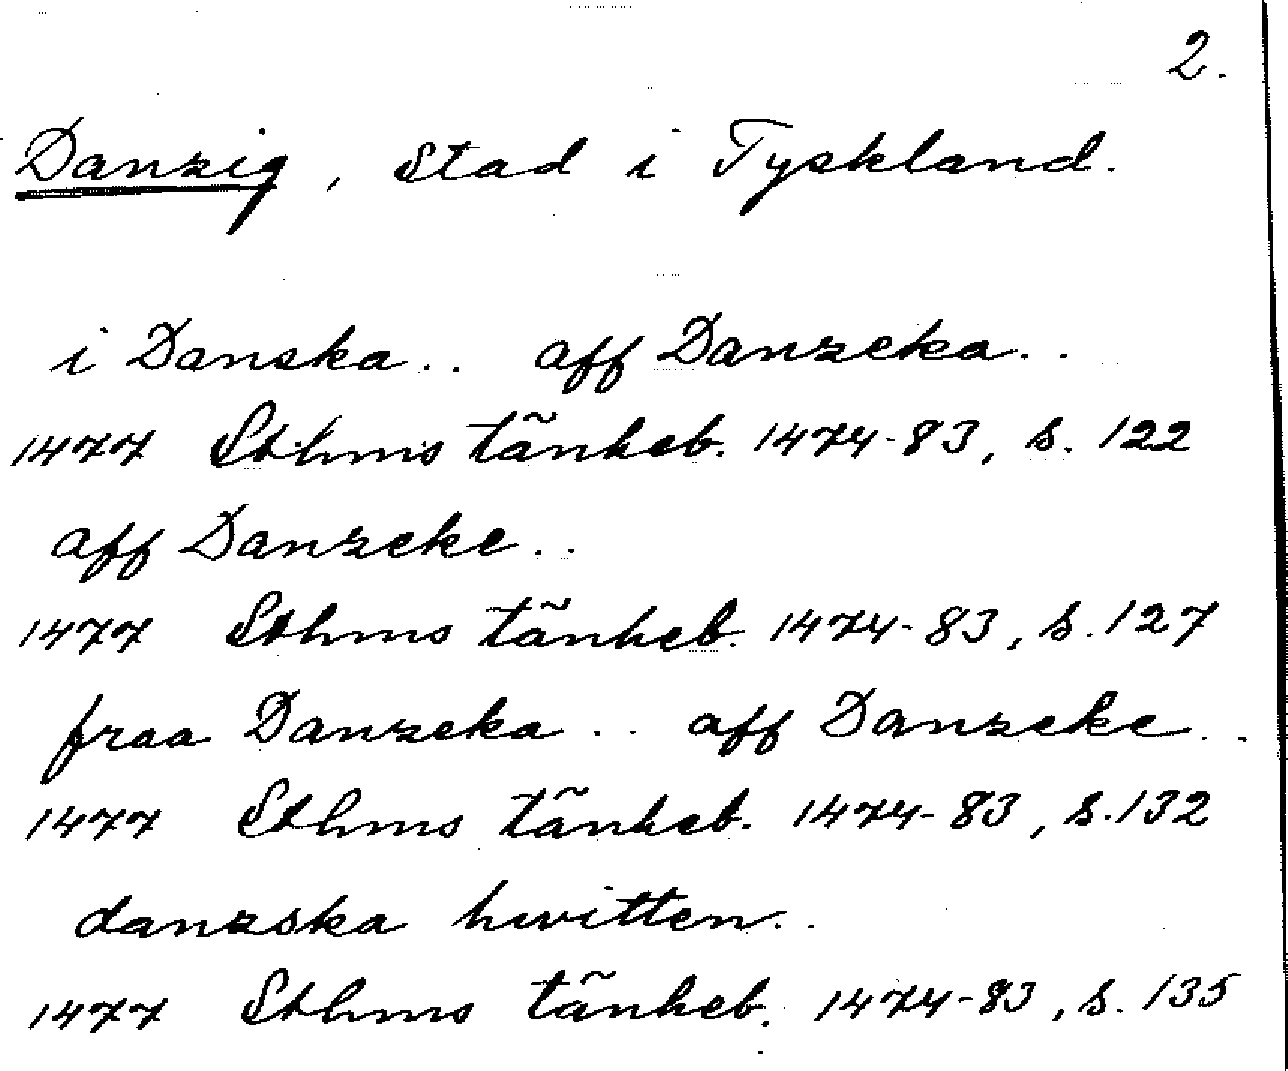 2.
Danzig, stad i Tyskland.
i Danska.. aff Danzeka..
1477 Sthms tänkeb. 1474-83, s. 122
aff Danzeke..
1477 Sthms tänkeb. 1474-83, s. 127
fraa Danzeka.. aff Danzeke..
1477 Sthms tänkeb. 1474-83, s. 132
danzska hwitten..
1477 Sthms tänkeb. 1474-83, s. 135